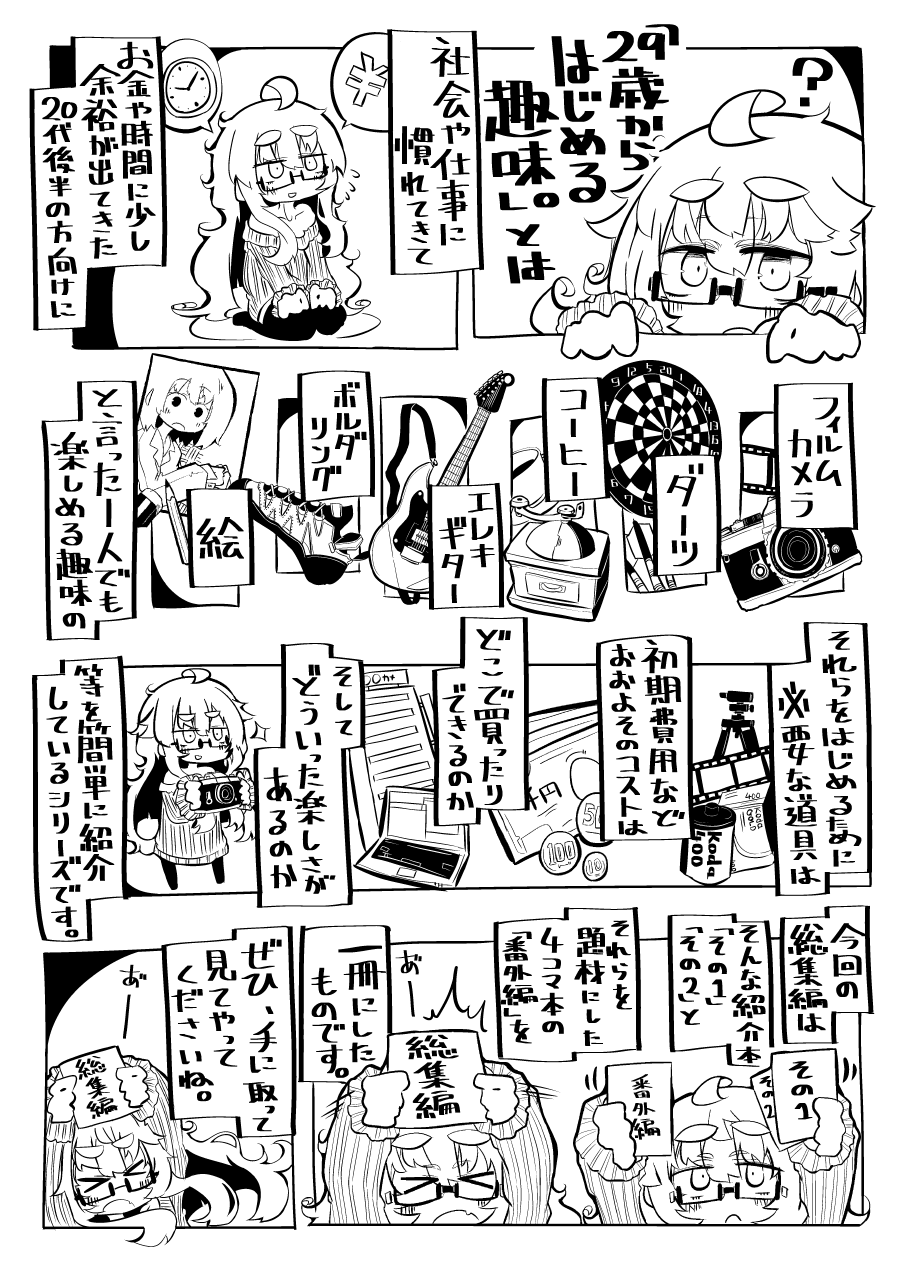 「29歳から
はじめる
趣味。」とは
?
社会や仕事に
慣れてきて
¥
お金や時間に少し
余裕が出てきた
20代後半の方向けに
フィルム
カメラ
ダーツ
コーヒー
エレキ
ギター
ボルダ
リング
絵
と、言った一人でも
楽しめる趣味の
それらをはじめるために
必要な道具は
400
Koda
400
初期費用など
おおよそのコストは
千円
50
100
10
どこで買ったり
できるのか
そして
どういった楽しさが
あるのか
等を簡単に紹介
しているシリーズです。
今回の
総集編は
そんな紹介本
「その1」
「その2」と
その1
その2
番外編
それらを
題材にした
4コマ本の
「番外編」を
一冊にした
ものです。
あ゛ー
総集編
ぜひ、手に取って
見てやって
くださいね。
あ゛ー
総集編